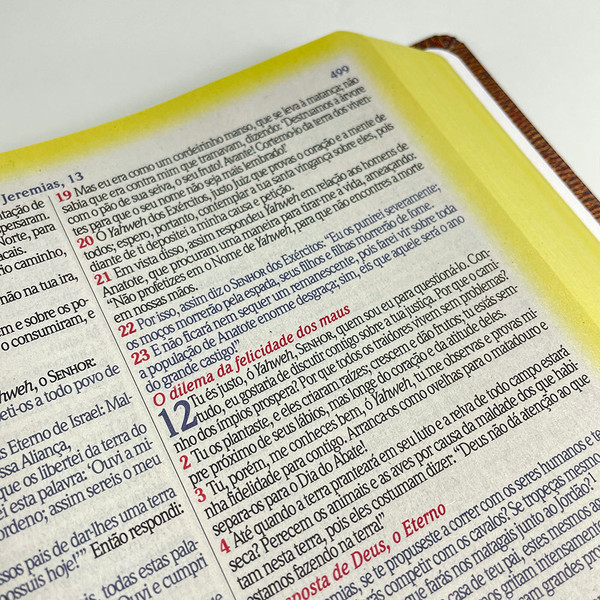 499
Jeremias, 13
ntação de
ispersaram.
Norte, para
acais.
io caminho,
não na tua ira
m e sobre os po-
o consumiram, e
hweh, o SENHOR:
eti-os a todo povo de
s Eterno de Israel: Mal-
ssa Aliança,
que os libertei da terra do
ei esta palavra: ‘Ouvi a mi-
ordeno; assim sereis o meu
ssos pais de dar-lhes uma terra
ossuís hoje!’” Então respondi:
, todas estas pala-
Ouvi e cumpri
19 Mas eu era como um cordeirinho manso, que se leva à matança; não
sabia que era contra mim que tramavam, dizendo: “Destruamos a árvore
com o pão de sua seiva, o seu fruto! Avante! Cortemo-lo da terra dos viven-
tes para que o seu nome não seja mais lembrado!”
20 Ó Yahweh dos Exércitos, justo juiz que provas o coração e a mente de
todos; espero, portanto, contemplar a tua santa vingança sobre eles, pois
diante de ti depositei a minha causa e petição.
21 Em vista disso, assim respondeu Yahweh em relação aos homens de
Anatote, que procuram uma maneira para tirar-me a vida, ameaçando:
“Não profetizes em o Nome de Yahweh, para que não encontres a morte
em nossas mãos.
22 Por isso, assim diz o SENHOR dos Exércitos: “Eis que os punirei severamente,
os moços morrerão pela espada, seus filhos e filhas morrerão de fome.
23 E não ficará nem sequer um remanescente, pois farei vir sobre toda
a população de Anatote enorme desgraça; sim, eis que aquele será o ano
do grande castigo!”
O dilema da felicidade dos maus
12 Tu és justo, ó Yahweh, SENHOR, quem sou eu para questioná-lo. Con-
tudo, eu gostaria de discutir contigo sobre a tua justiça. Por que o cami-
nho dos ímpios prospera? Por que todos os traidores vivem sem problemas?
2 Tu os plantaste, e eles criaram raízes; crescem e dão frutos; tu estás sem-
pre próximo de seus lábios, mas longe do coração e da atitude deles.
3 Tu, porém, me conheces bem, ó Yahweh, tu me observas e provas mi-
nha fidelidade para contigo. Arranca-os como ovelhas para o matadouro e
separa-os para o Dia do Abate!
4 Até quando a terra pranteará em seu luto e a relva de todo campo estará
seca? Perecem os animais e as aves por causa da maldade dos que habi-
tam nesta terra, pois eles costumam dizer: “Deus não dá atenção ao que
estamos fazendo na terra!”
posta de Deus, o Eterno
mias, se te propuseste a correr com os seres humanos e te
rás competir com os cavalos? Se tropeças mesmo
que farás nos matagais junto ao Jordão?
casa de teu pai, estes mesmos
gritam intensamente